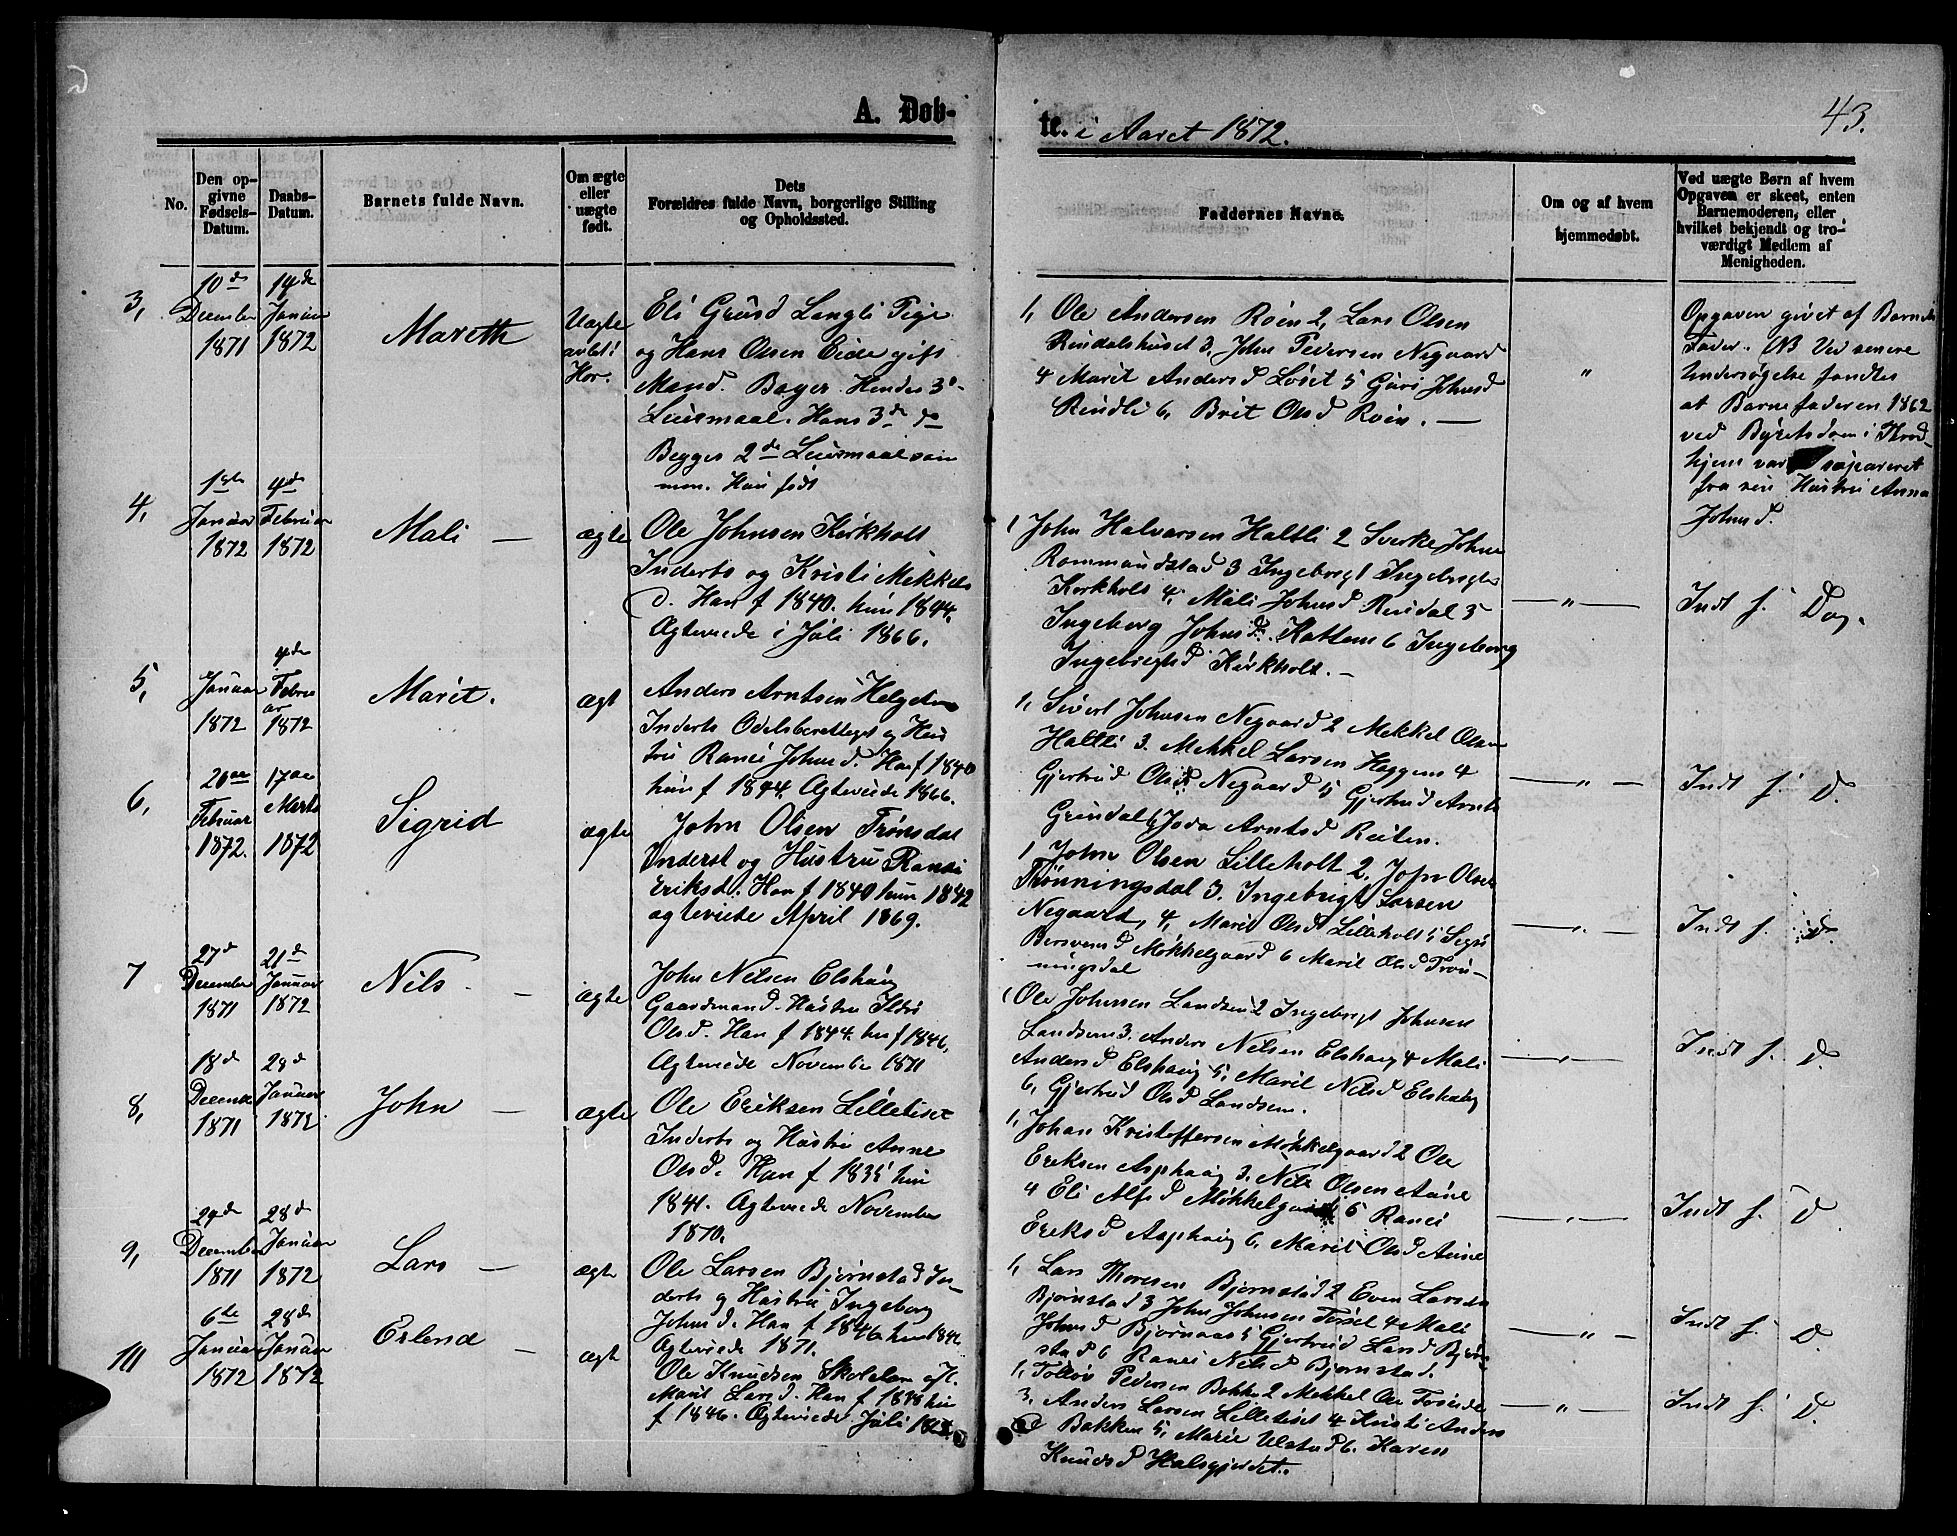 A. Døb-
te. i Aaret 1872.
43.
No.
Den op-
givne
Fødsels-
Datum.
Daabs-
Datum.
Barnets fulde Navn.
Om ægte
eller
uægte
født.
Dets
Forældres fulde Navn, borgerlige Stilling
og Opholdssted.
Faddernes Navne.
Om og af hvem
hjemmedøbt.
Ved uægte Børn af hvem
Opgaven er skeet, enten
Barnemoderen, eller
hvilket bekjendt og tro-
værdigt Medlem af
Menigheden.
3,
10de
December
1871
14de
Januar
1872
Mareth
Uægte
avlet i
Hor.
Eli Grusd Langli Pige
og Hans Olsen Eide gift
Mand. Bager. Hendes 3de
Leiermaal. Hans 3de do
Begges 2de Leiermaal sam
men. Hun født
1, Ole Andersen Roen 2, Lars Olsen
Rindalshuset 3, John Pedersen Negaard
4 Marit Andersd Løset 5 Guri Johnsd
Rindli 6, Brit Olsd Roen. —
"
Opgaven givet af Barnets
Fader. NB Ved senere
Undersøgelse fandtes
at Barnefaderen 1862
ved Byretsdom i Thrond-
hjem var separeret
fra sin Hustru Anna
Johnsd.
4,
1ste
Januar
1872
4de
Februar
1872
Mali —
ægte
Ole Johnsen Kirkholt
Inderts og Kristi Mekkels
d. Han f 1840. hun 1844.
Ægteviede i Juli 1866.
1 John Halvarsen Haltli 2 Sverke Johns
Rommundstad 3 Ingebrigt Ingebrigts
Kirkholt 4, Mali Johnsd Rindal 5
Ingeborg Johnsd. Kattem 6 Ingeborg
Ingebrigtsd Kirkholt. —
— " —
Indt f. Dag.
5,
Januar
1872
4de
Febru
ar
1872
Marit.
ægt
Anders Arntsen Helgetun
Inderts Odelsberettiget og Hus
tru Ranei Johnsd. Han f 1840
hun f 1844. Ægteviede 1866.
1, Sivert Johnsen Negaard 2 Mekkel Olsen
Haltli 3. Mekkel Larsen Heggem 4
Gjertrud Olsd Negaard 5 Gjertrud Arnts
Grindal 6 Joda Arntsd Reiten.
— " —
Indt f. D.
6,
20de
Februar
1872.
17de
Marts
1872
Sigrid
ægte
John Olsen Trønsdal
Inderst og Hustru Ranei
Eriksd. Han f 1840 hun 1842
ægteviede April 1869.
1 John Olsen Lilleholt 2, John Olsen
Trønningsdal 3. Ingebrigt Larsen
Negaard, 4, Marit Olsd Lilleholt 5 Sigri
Bersvensd Møkkelgaard 6 Marit Olsd Trøn-
ningsdal
— " —
Indt f. D.
7
27de
December
1871
21de
Januar
1872
Nils —
ægte
John Nilsen Elshaug
Gaardmand. Hustru Ildri
Olsd. Han f 1844. hun f 1846.
Ægteviede November 1871
1 Ole Johnsen Landsem 2 Ingebrigt Johnsen
Landsem 3. Anders Nilsen Elshaug 4 Mali
Andersd Elshaug 5, Marit Nilsd Elshaug
6, Gjertrud Olsd Landsem.
— " —
Indt f. D.
8,
18de
December
1871
28de
Januar
1872
John —
ægte
Ole Eriksen Lilletiset
Inderts og Hustru Anne
Olsd. Han f 1835 hun
1841. Ægteviede November
1870.
1, Johan Kristoffersen Møkkelgaard 2 Ole
Eriksen Asphaug 3, Nils Olsen Aune
4 Eli Alfsd Møkkelgaard 5 Ranei
Eriksd Asphaug 6, Marit Olsd Aune
— " —
Indt f. D.
9,
29de
December
1871
28de
Januar
1872
Lars —
ægte
Ole Larsen Bjørnstad In-
derts og Hustru Ingeborg
Johnsd. Han f 1846 hun 1842
Ægteviede 1871.
1, Lars Thoresen Bjørnstad 2 Even Larsen
Bjørnstad 3 John Johnsen Torset 4 Mali
Johnsd Bjørnaas 5 Gjertrud Larsd Bjørn-
stad 6 Ranei Nilsd Bjørnstad.
— " —
Indt f. D.
10
6te
Januar
1872
28de
Januar
1872
Erlend —
ægt
Ole Knudsen Skolelærer og H.
Marit Larsd. Han f 1838 hun
f 1846. Ægteviede Juli
1, Tollov Pedersen Bakken 2 Mekkel Ole
3, Anders Larsen Lilletiset 4 Kristi Anders
d Bakken 5, Marie Ulstad 6. Karen
Knudsd Halsgjerdet.
— " —
Indt f. D.